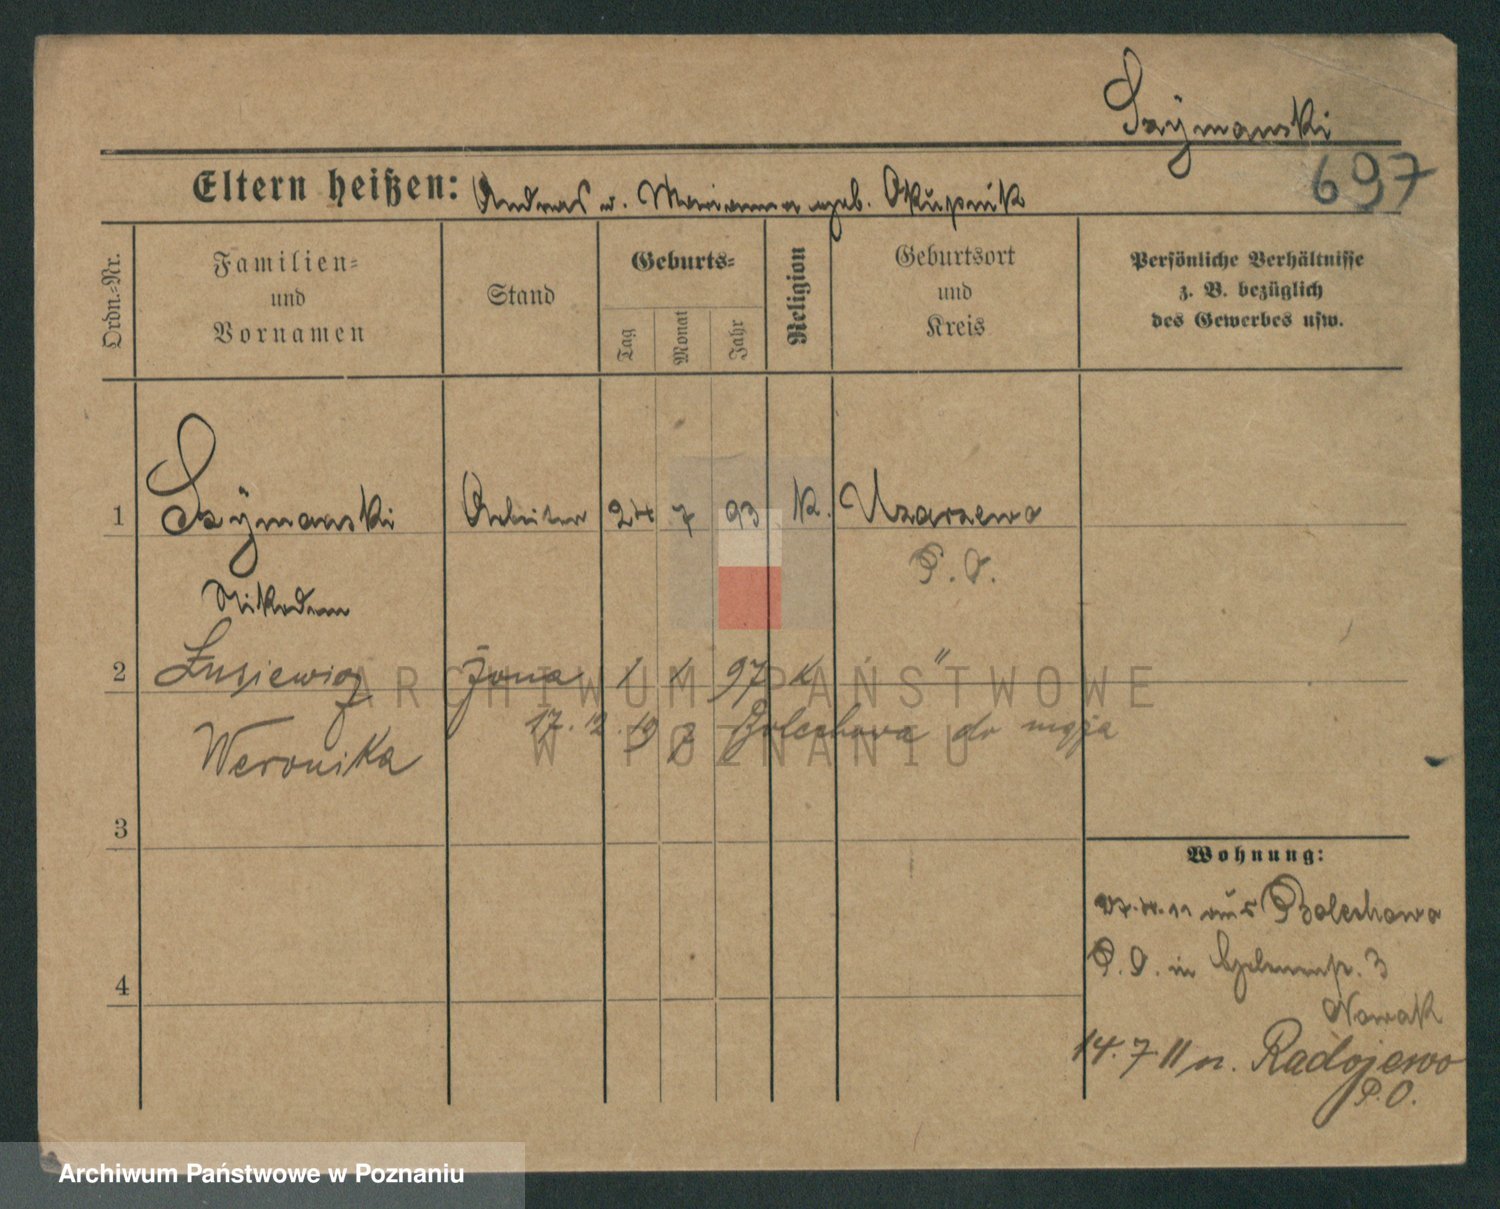 Szÿmanski
697
Eltern heißen: Andreas u. Marianna geb. Okupnik
Ordn.-Nr.
Familien-
und
Vornamen
Stand
Geburts-
Tag
Monat
Jahr
Religion
Geburtsort
und
Kreis
Persönliche Verhältnisse
z. B. bezüglich
des Gewerbes usw.
1 Szÿmanski Arbeiter 24 7 93 K. Uzarzewo
P. O.
Nikodem
2 żona 1 1 97 K "
17.12.19 z Bolechowa do męża
Weronika
3
4
Wohnung:
aus Bolechowo
P. O. in 3
Nowak
14.7.11 n. Radojewo
P.O.
ARCHIWUM PAŃSTWOWE
W POZNANIU
Archiwum Państwowe w Poznaniu